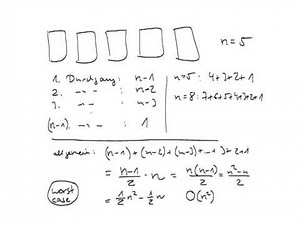 n=5
1. Durchgang : n-1
2. -"- : n-2
3. -"- : n-3
(n-1). -"- : 1
n=5: 4+3+2+1
n=8: 7+6+5+4+3+2+1
allgemein: (n-1)+(n-2)+(n-3)+...+3+2+1
= n-1/2 · n = n(n-1)/2 = n²-n/2
= 1/2 n² - 1/2 n O(n²)
worst
case